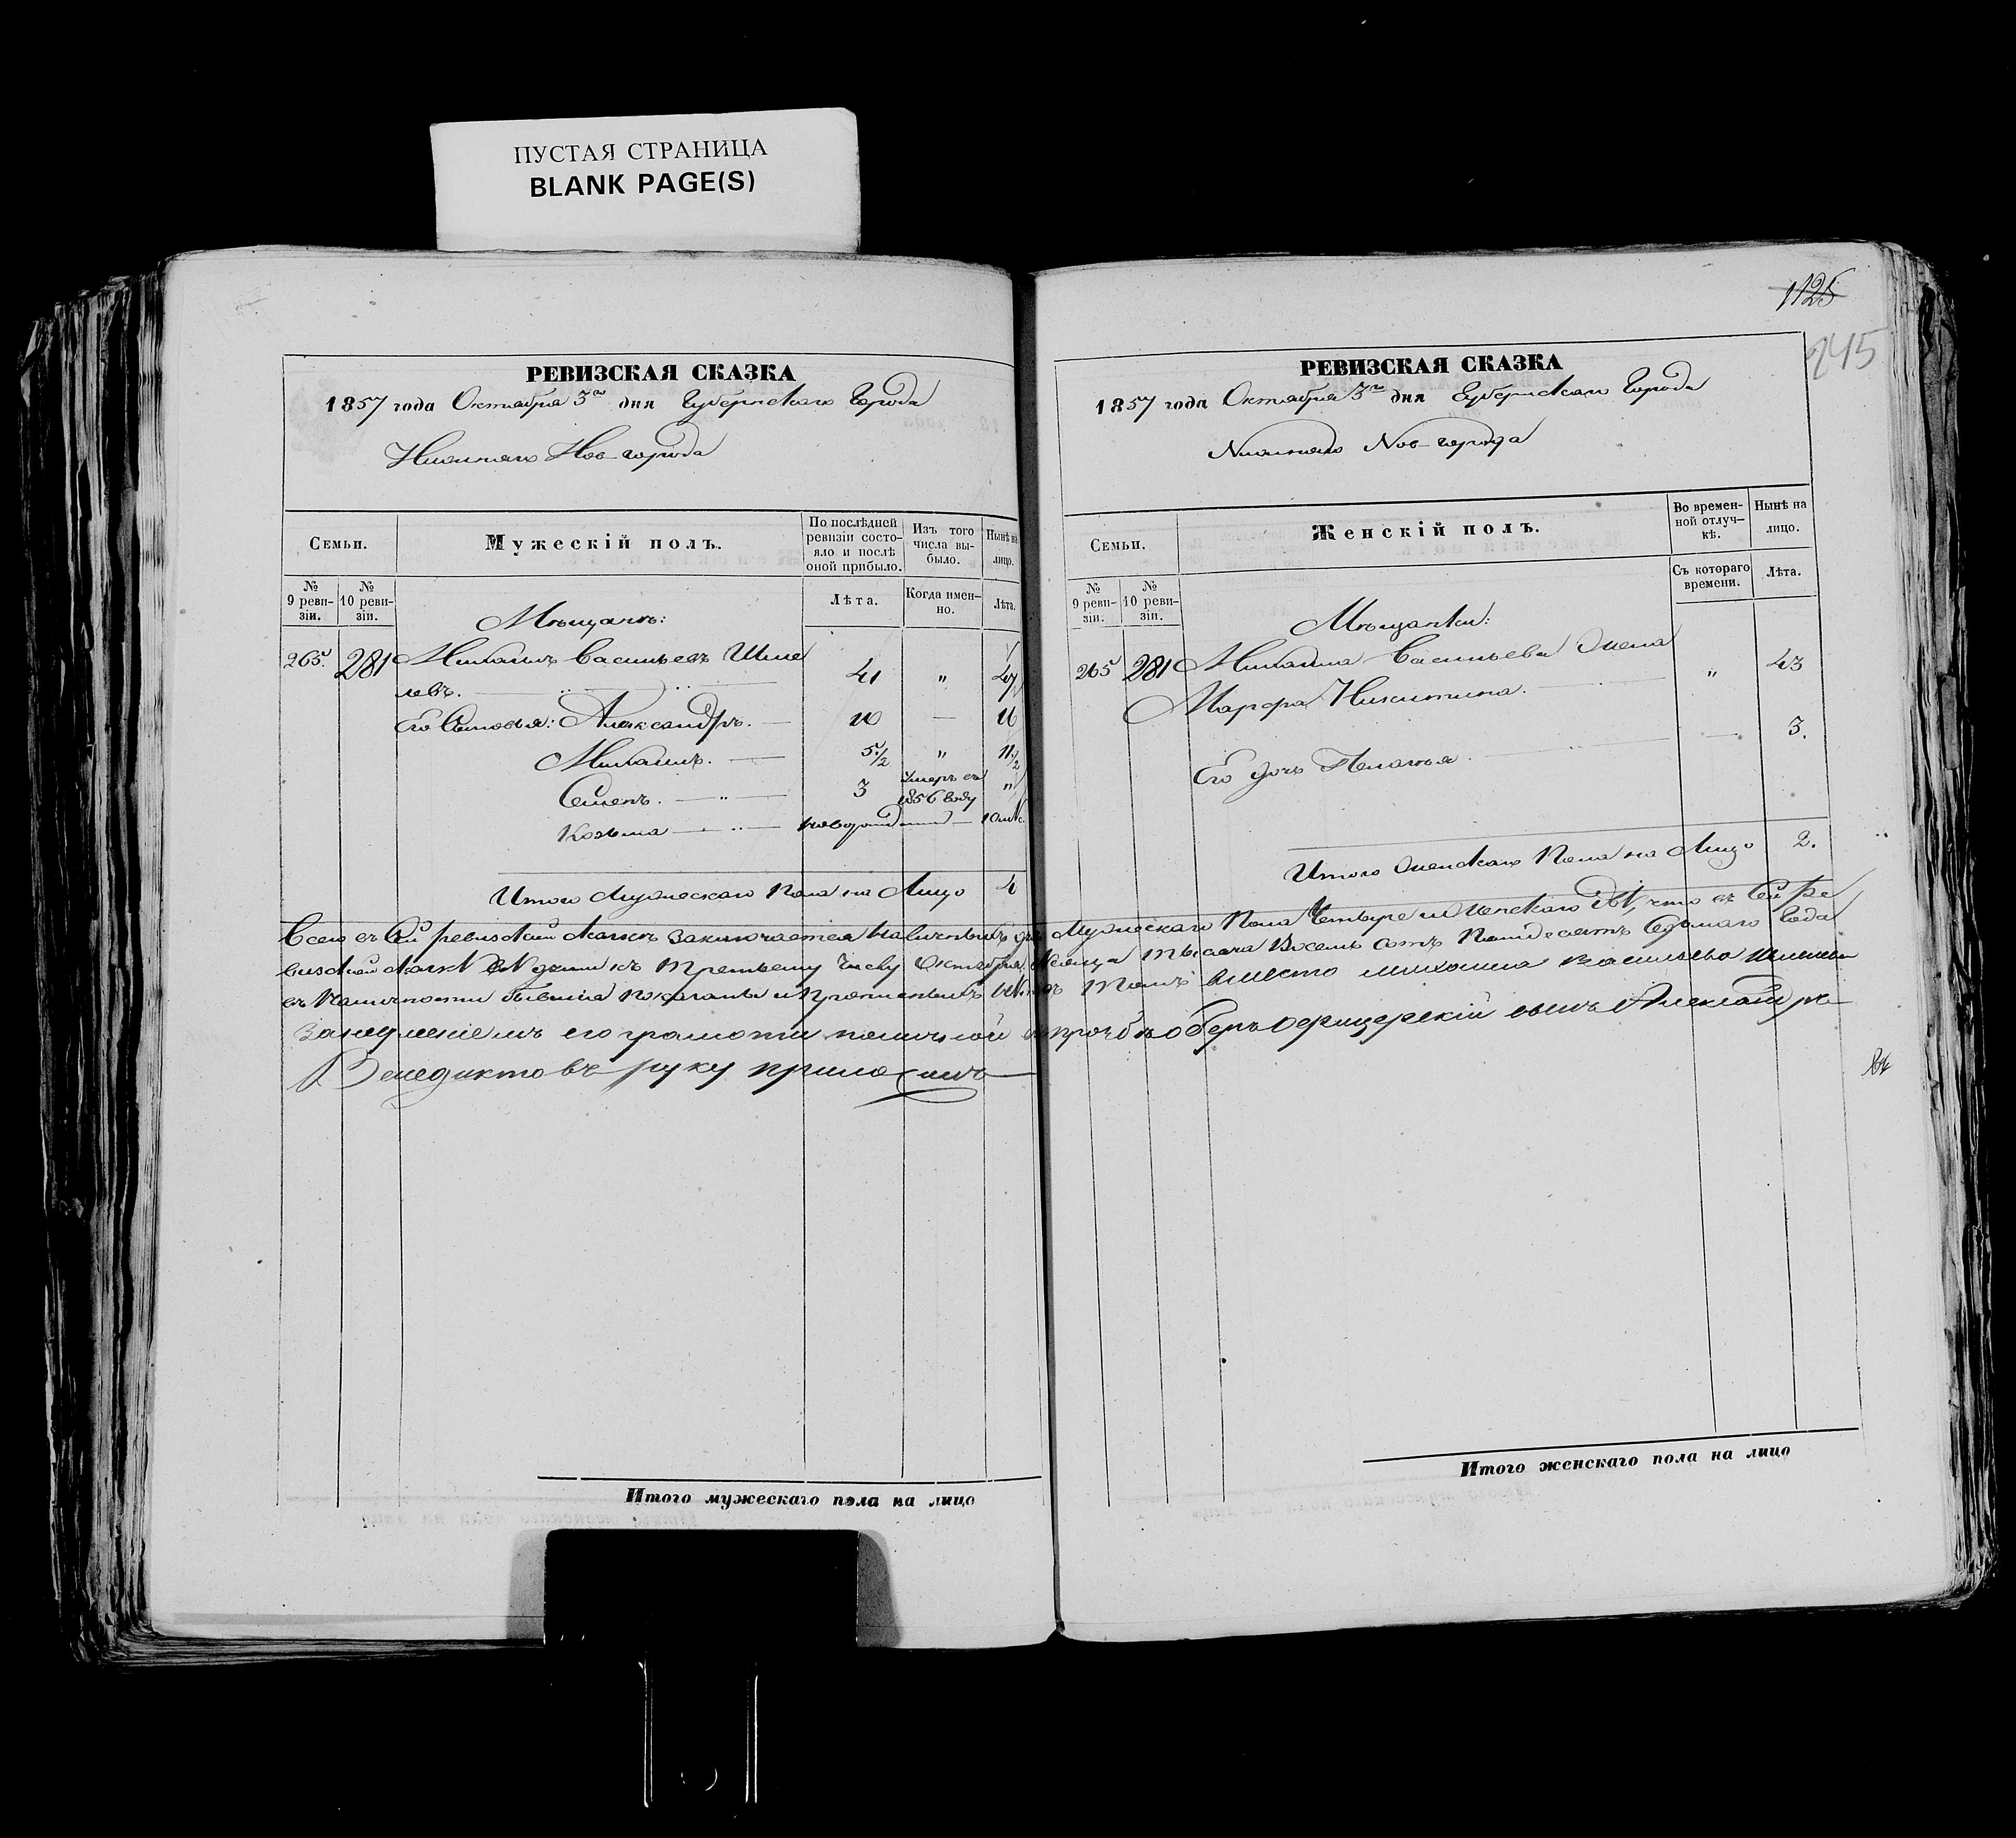 ПУСТАЯ СТРАНИЦА
BLANK PAGE(S)
РЕВИЗСКАЯ СКАЗКА
1857 года Октября 3го дня Губернскаго Города
Нижняго Нов-города
Семьи.
Мужескій полъ.
По послѣдней ревизіи состояло и послѣ оной прибыло.
Изъ того числа выбыло.
Нынѣ на лицо.
№ 9 ревизіи.
№ 10 ревизіи.
Лѣта.
Когда именно.
Лѣта.
Мѣщанъ:
265. 281 Михаилъ Васильевъ Шме
левъ. 41 " 47
Его Сыновья: Александръ. — 10 — 16
Михаилъ. — 5 1/2 " 11 1/2
Семенъ. — " — 3 Умеръ въ 1856 году "
Козьма — " — новорожденный —
Итого Мужескаго Пола на Лицо 4
1125
245
РЕВИЗСКАЯ СКАЗКА
1857 года Октября 3го дня Губернскаго Города
Нижняго Нов-города
Семьи.
Женскій полъ.
Во временной отлучкѣ.
Нынѣ на лицо.
№ 9 ревизіи.
№ 10 ревизіи.
Съ котораго времени.
Лѣта.
Мѣщанки:
265 281 Михаила Васильева Жена
Марфа Никитина. " 43
Его дочь Пелагья. — 3.
Итого Женскаго Пола на Лицо 2.
Всего въ Сей ревизской сказкѣ заключается Наличныхъ душъ Мужескаго Пола Четыре и Женскаго двѣ, что въ Сей Ре
визской сказкѣ всѣ души къ Третьему Числу Октября Месяца Тысяча Восемь сотъ Пятьдесятъ Седьмаго Года
въ Наличности бывшія показаны и Прописныхъ нѣтъ въ Томъ вместо михаила васильева Шмелева
занеуменіемъ его грамоти поличной его прозбѣ оберъ офицерскій сынъ Александръ
Венедиктовъ руку приложилъ
Итого мужескаго пола на лицо
Итого женскаго пола на лицо